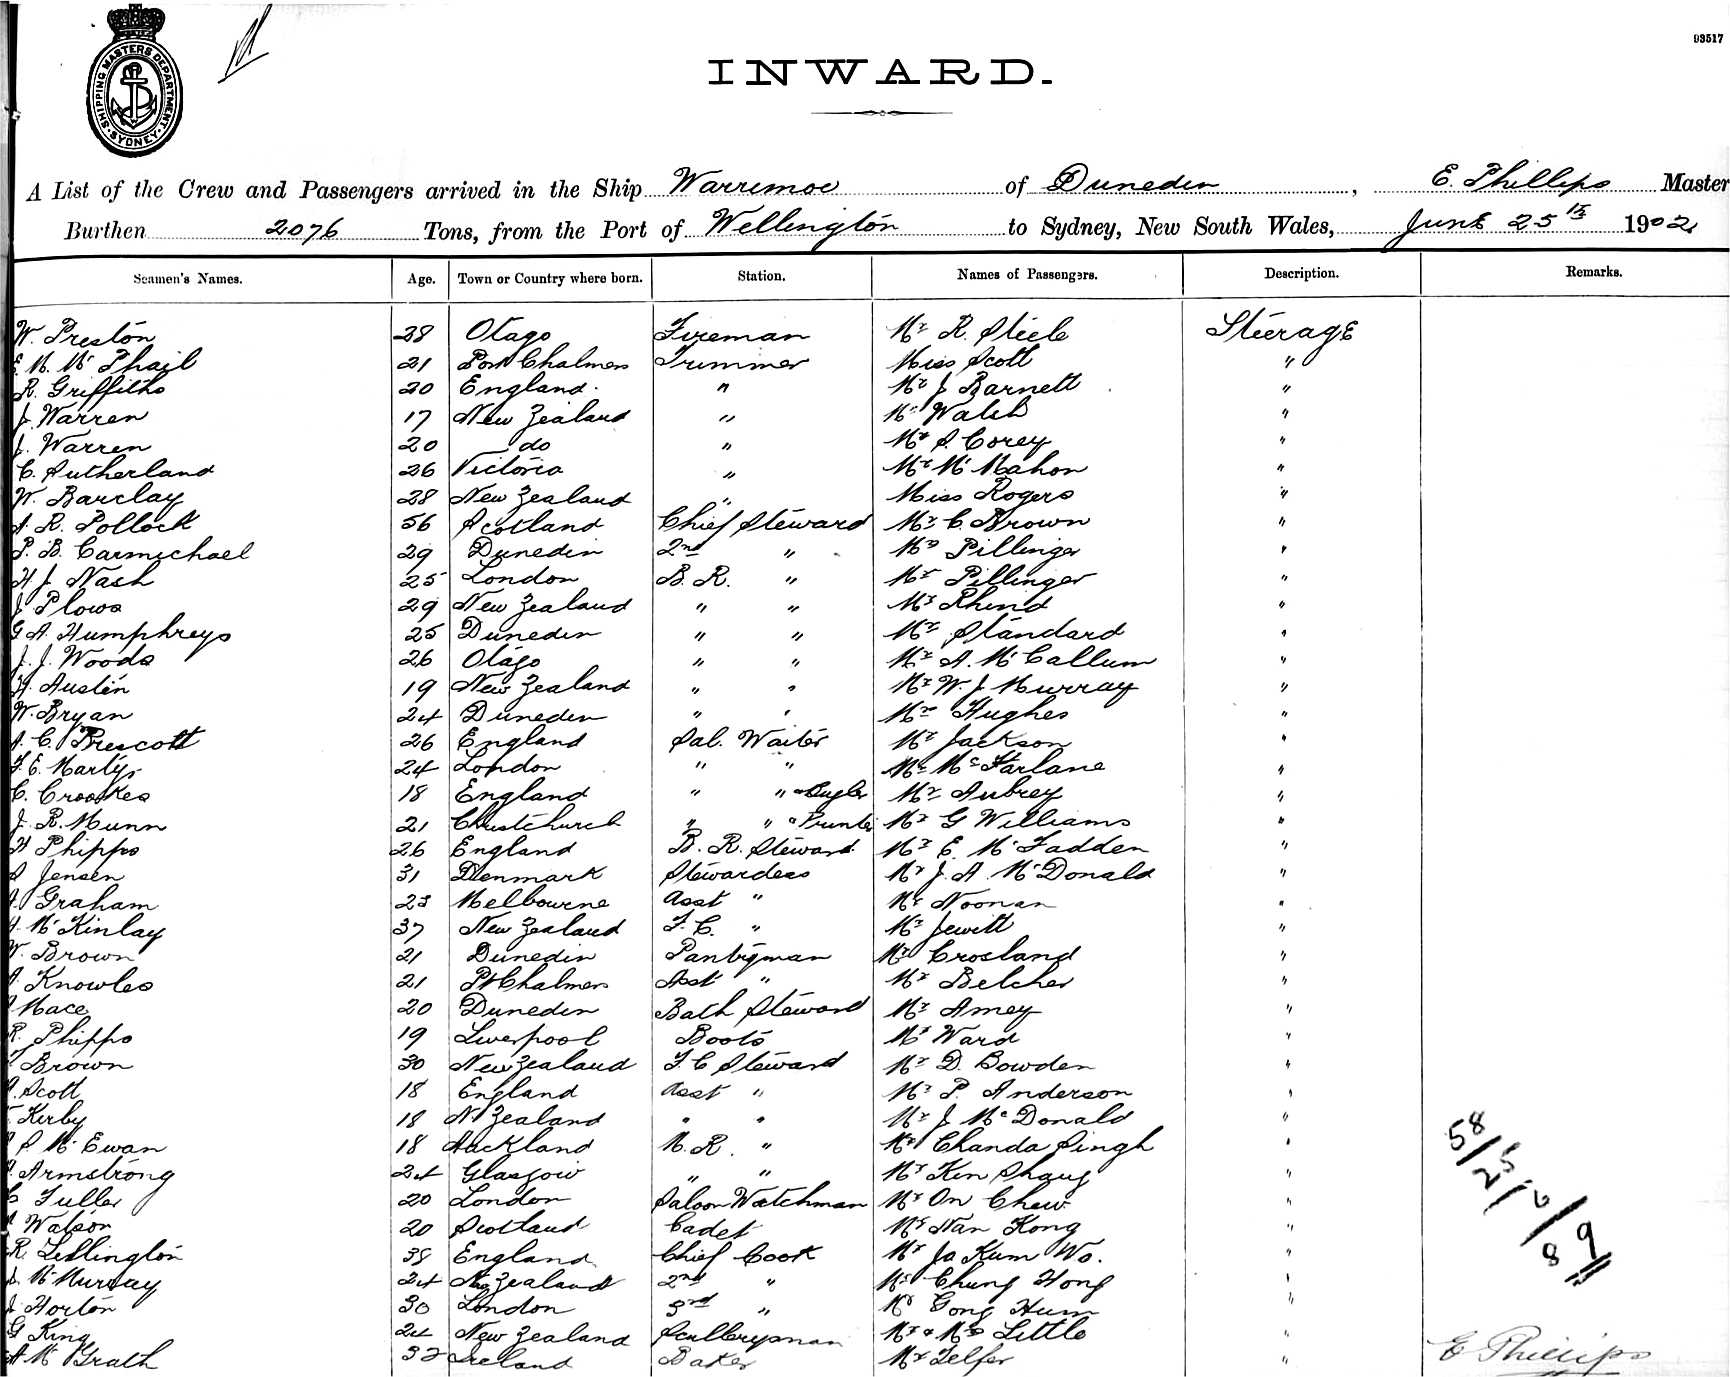 SHIPPING MASTERS DEPARTMENT
· SYDNEY ·
93517
INWARD.
A List of the Crew and Passengers arrived in the Ship Warrimoo of Dunedin, E. Phillips Master
Burthen 2076 Tons, from the Port of Wellington to Sydney, New South Wales, June 25th 1902
Seamen's Names. Age. Town or Country where born. Station. Names of Passengers. Description. Remarks.
W. Preston 28 Otago Fireman Mr R. Steele Steerage
Mc Phail 21 Port Chalmers Trimmer Miss Scott "
R. Griffiths 20 England " Mr J Barnett "
J. Warren 17 New Zealand " Mr Walsh "
J. Warren 20 do " Mr S. Corey "
C. Sutherland 26 Victoria " Mr Mc Mahon "
W. Barclay 28 New Zealand " Miss Rogers "
A. R. Pollock 56 Scotland Chief Steward Mr C. Brown "
P. B. Carmichael 29 Dunedin 2nd " Pillinger "
H J. Nash 25 London B. R. " Mr Pillinger "
J Plows 29 New Zealand " " Mr Rhind "
G A. Humphreys 25 Dunedin " " Mr Standard "
J. J. Woods 26 Otago " " Mr A. Mc Callum "
H. Austin 19 New Zealand " " Mr W. J Murray "
W. Bryan 24 Dunedin " " Mr Hughes "
A. C. Prescott 26 England Sal. Waiter Mr Jackson "
F. E. Martyr 24 London " " Mr McFarlane "
C. Crookes 18 England " " & Bugler Mr Aubrey "
J. R. Munn 21 Christchurch " " & Printer Mr G Williams "
H Phipps 26 England B. R. Steward Mr E. Mc Fadden "
Jensen 31 Denmark Stewardess Mr J. A. McDonald "
Graham 23 Melbourne Asst " Mr Noonan "
Mc Kinlay 37 New Zealand F. C. " Mr Jewitt "
W. Brown 21 Dunedin Pantryman Mr Crosland "
A. Knowles 21 Pt Chalmers Asst " Mr Belcher "
Mace 20 Dunedin Bath Steward Mr Amey "
R. Phipps 19 Liverpool Boots Mr Ward "
Brown 30 New Zealand F. C Steward Mr D. Bowden "
Scott 18 England Asst " Mr P. Anderson "
Kerby 18 N. Zealand " " Mr J McDonald "
S Mc Ewan 18 Auckland M. R. " Mr Chanda Singh "
Armstrong 24 Glasgow " " Mr Ken "
Fuller 20 London Saloon Watchman Mr On Chew "
Watson 20 Scotland Cadet Mr Nan Kong "
R. 38 England Chief Cook Mr Jo Kum Wo. "
Mc Murray 24 New Zealand 2nd " Mr Chung Hong "
J Horton 30 London 3rd " Mr Gong Hum "
G King 24 New Zealand Sculleryman Mr & Mrs Little "
A Mc Grath 32 Ireland Baker Mr Telfer "
E Phillips